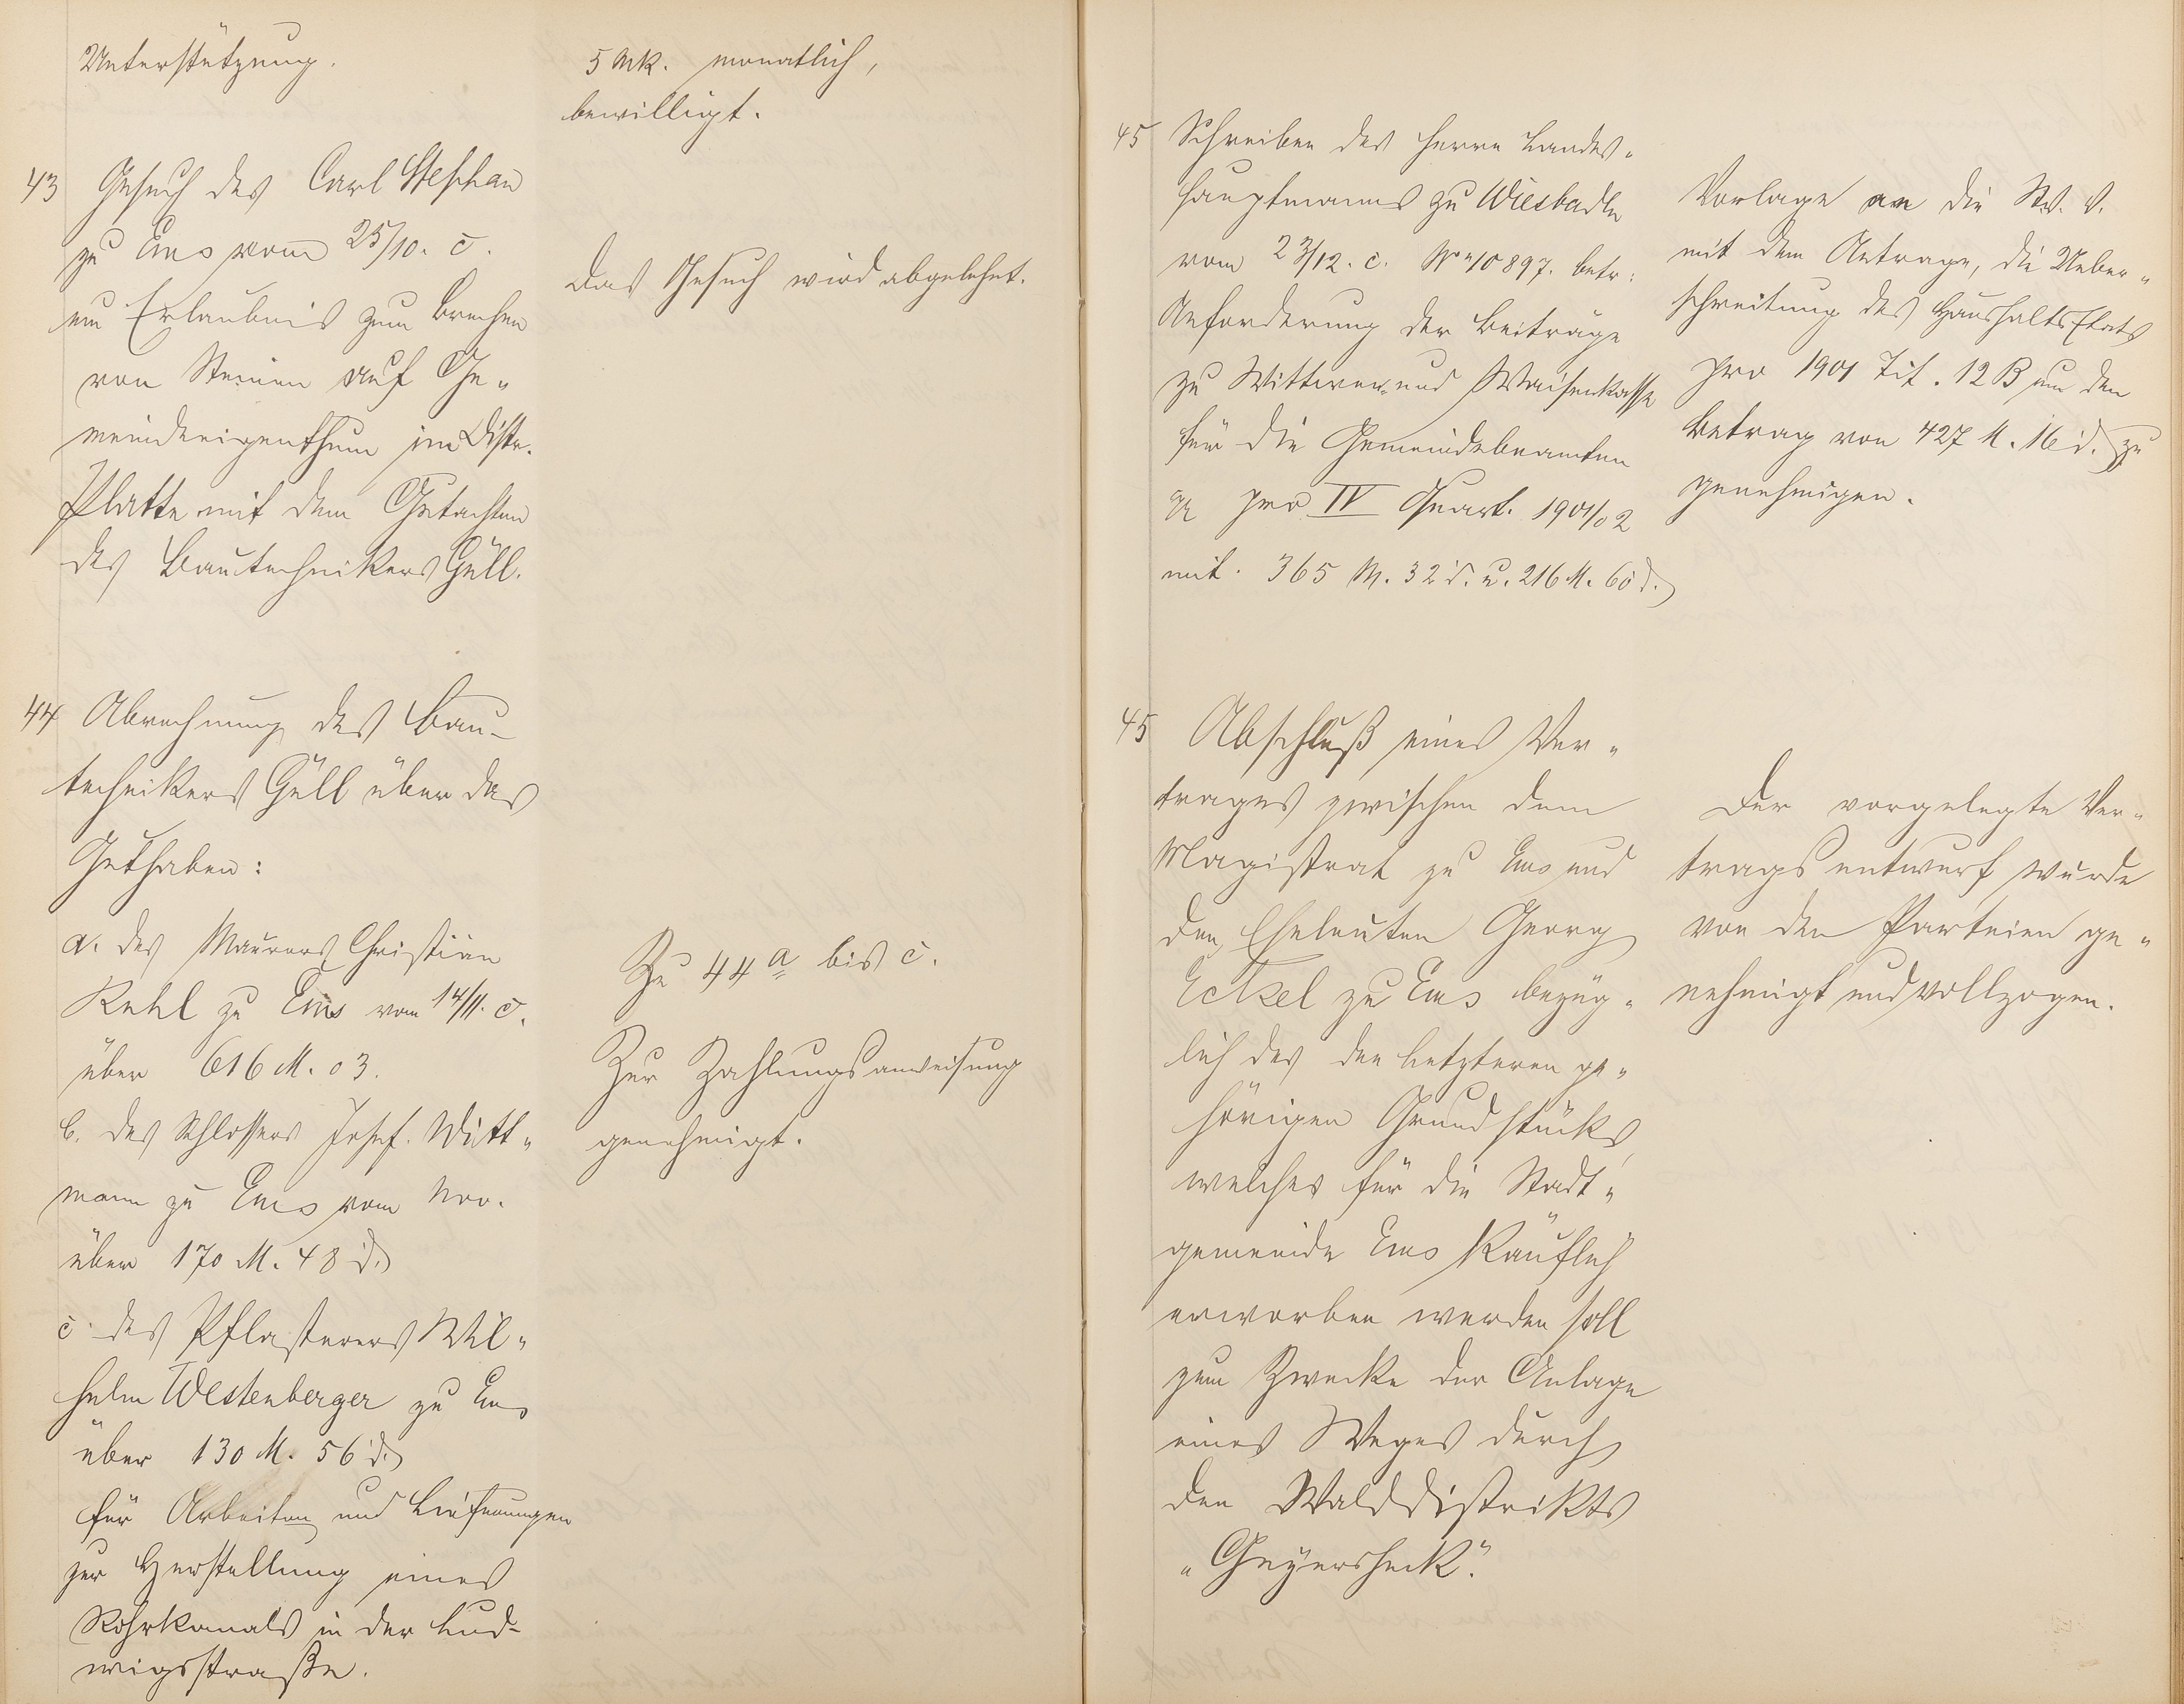 Unterstützung.
5 Mk. monatlich,
bewilligt.
43 Gesuch des Carl Stephan
zu Ems vom 25/10. c.
um Erlaubnis zum Brechen
von Steinen auf Ge-
meindeeigenthum im Distr.
Platte mit dem Gutachten
des Bautechnikers Güll.
Das Gesuch wird abgelehnt.
44 Abrechnung des Bau-
technikers Güll über das
Guthaben:
a. des Maurers Christian
Kehl zu Ems vom 14/11. c.
über 616 M. 03.
b. des Schlossers Josef Witt-
mann zu Ems vom Nov.
über 170 M. 48 d.
c. des Pflasterers Wil-
helm Westenberger zu Ems
über 130 M. 56 d.
für Arbeiten und Lieferungen
zur Herstellung eines
Rohrkanals in der Lud-
wigsstraße.
Zu 44 a bis c.
Zur Zahlungsanweisung
genehmigt.
45 Schreiben des Herrn Landes-
hauptmanns zu Wiesbaden
vom 23/12. c. No 10897. betr:
Anforderung der Beiträge
zu Wittwen- und Waisenkasse
für die Gemeindebeamten
pro IV Quart. 1901/02
mit 365 M. 32 d. u. 216 M. 60 d.
Vorlage an die St. V.
mit dem Antrage, die Ueber-
schreitung des Haushalts Etats
pro 1901 Tit. 12 B um den
Betrag von 427 M. 16 d. zu
genehmigen.
45 Abschluß eines Ver-
trages zwischen dem
Magistrat zu Ems und
den Eheleuten Georg
Eckel zu Ems bezüg-
lich des den Letzteren ge-
hörigen Grundstücks,
welches für die Stadt-
gemeinde Ems käuflich
erworben werden soll
zum Zwecke der Anlage
eines Weges durch
den Walddistrikts
"Geyersheck".
Der vorgelegte Ver-
tragsentwurf wurde
von den Parteien ge-
nehmigt und vollzogen.